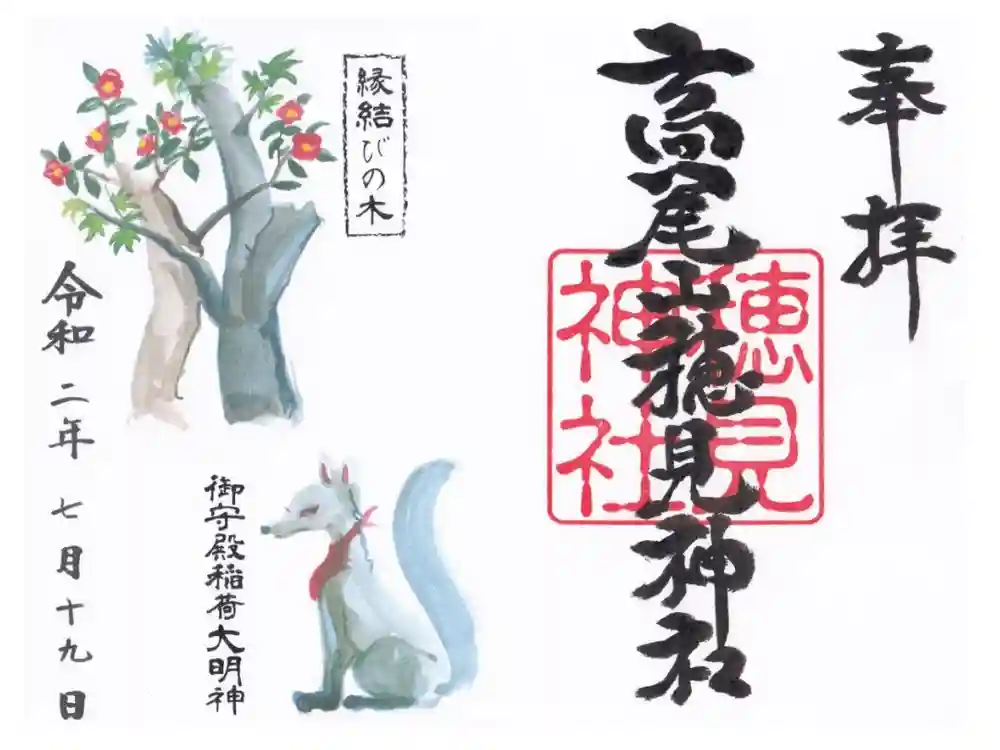 奉拝
高尾山穂見神社
穂見
神社
縁結びの木
御守殿稲荷大明神
令和二年七月十九日